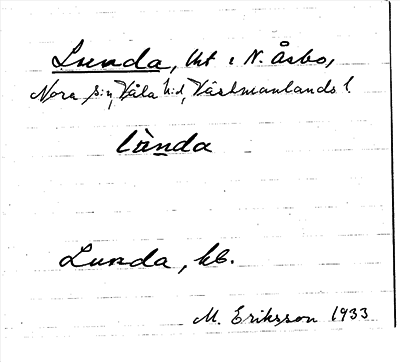 Lunda, tkt i N. Åsbo,
Nora sn, Våla hd, Västmanlands l.
lùnda
Lunda, kb.
M. Eriksson 1933